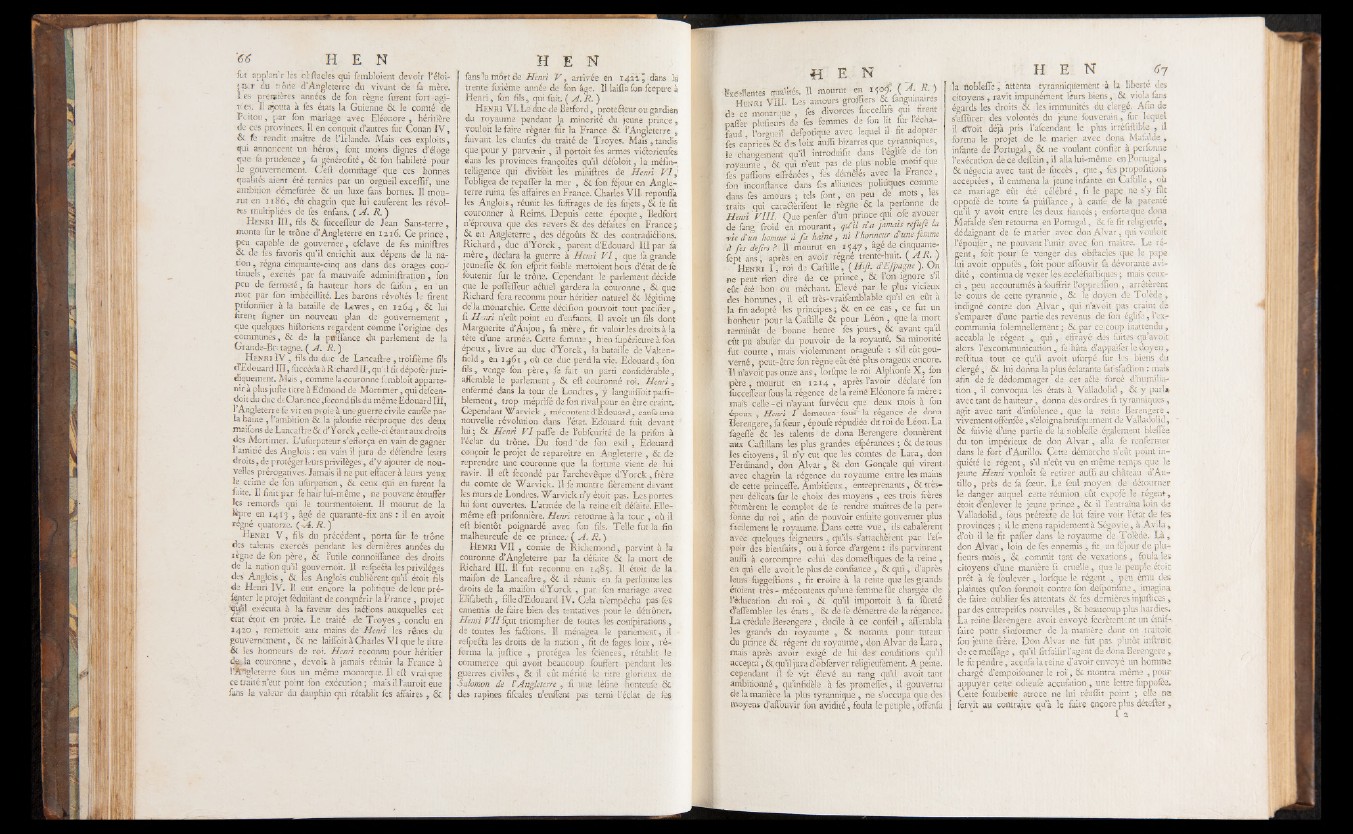 66 H E N
fut applanir les obſtacles qui ſembloient devoir l'éloi-
gner du trône d'Angleterre du vivant de ſa mère.
Les premières années de ſon règne furent fort agi-
tées. Il ajouta à ſes états la Guienne & le comté de
Poitou, par ſon mariage avec Eléonore, héritière
de ces provinces. Il en conquit d'autres ſur Conan IV,
& ſe rendit maître de l'Irlande. Mais ces exploits,
qui annoncent un héros, ſont moins dignes d'éloge
que ſa prudence, ſa généroſité, & ſon habileté pour
le gouvernement. C'eſt dommage que ces bonnes
qualités aient été ternies par un orgueil exceſſif, une
ambition démeſurée & un luxe ſans bornes. Il mou-
rut en 1186, du chagrin que lui cauſèrent les révol-
tes multipliées de ſes enfans. (A. R.)
HENRI III, fils & ſucceſſeur de Jean Sans-terre,
monta ſur le trône d'Angleterre en 1216. Ce prince,
peu capable de gouverner, eſclave de ſes miniſtres
& de ſes favoris qu'il enrichit aux dépens de la na-
tion, régna cinquante-cinq ans dans des orages con-
tinuels, excités par ſa mauvaiſe adminiſtration, ſon
peu de fermeté, ſa hauteur hors de ſaiſon, en un
mot par ſon imbécillité. Les barons révoltés le firent
priſonnier à la bataille de Lewes, en 1264, & lui
firent ſigner un nouveau plan de gouvernement,
que quelques hiſtoriens regardent comme l'origine des
communes, & de la puiſſance du parlement de la
Grande-Bretagne. (A. R.)
HENRI IV, fils du duc de Lancaſtre, troiſième fils
d'Edouard III, ſuccéda à Richard II, qu'il fit dépoſer juri-
diquement. Mais, comme la couronne ſembloit apparte-
nir à plus juſte titre à Edmond de Mortimer, qui deſcen-
doit du duc de Clarence, ſecond fils du même Edouard III,
l'Angleterre ſe vit en proie à une guerre civile cauſée par
la haine, l'ambition & la jalouſie réciproque des deux
maiſons de Lancaſtre & d'Yorck, celle-ci étant aux droits
des Mortimer. L'uſurpateur s'efforça en vain de gagner
l'amitié des Anglois: en vain il jura de défendre leurs
droits, de protéger leurs privilèges, d'y ajouter de nou-
velles prérogatives. Jamais il ne put effacer à leurs yeux
le crime de ſon uſurpation, & ceux qui en furent la
ſuite. Il finit par ſe haïr lui-même, ne pouvant étouffer
les remords qui le tourmentoient. Il mourut de la
lèpre en 1413, âgé de quarante-ſix ans: il en avoit
régné quatorze. (A. R.)
HENRI V, fils du précédent, porta ſur le trône
des talens exercés pendant les dernières années du
règne de ſon père, & l'utile connoiſſance des droits
de la nation qu'il gouvernoit. Il reſpecta les privilèges
des Anglois, & les Anglois oublièrent qu'il étoit fils
de Henri IV. Il eut encore la politique de leur pré-
ſenter le projet ſéduiſant de conquérir la France, projet
qu'il exécuta à la faveur des factions auxquelles cet
état étoit en proie. Le traité de Troyes, conclu en
1420, remettoit aux mains de Henri les rênes du
gouvernement, & ne laiſſoit à Charles VI que le titre
& les honneurs de roi. Henri reconnu pour héritier
de la couronne, devoit à jamais réunir la France à
l'Angleterre ſous un même monarque. Il eſt vrai que
ce traité n'eut point ſon exécution; mais il l'auroit eue
ſans la valeur du dauphin qui rétablit ſes affaires, &
H E N
ſans la mort de Henri V, arrivée en 1422, dans la
trente ſixième année de ſon âge. Il laiſſa ſon ſceptre à
Henri, ſon fils, qui ſuit. (A. R.)
HENRI VI. Le duc de Betford, protecteur ou gardien
du royaume pendant la minorité du jeune prince,
vouloit le faire régner ſur la France & l'Angleterre,
ſuivant les clauſes du traité de Troyes. Mais, tandis
que pour y parvenir, il portoit ſes armes victorieuſes
dans les provinces françoiſes qu'il déſoloit, la méſin-
telligence qui diviſoit les miniſtres de Henri VI,
l'obligea de repaſſer la mer, & ſon ſéjour en Angle-
terre ruina ſes affaires en France. Charles VII repouſſa
les Anglois, réunit les ſuffrages de ſes ſujets, & ſe fit
couronner à Reims. Depuis cette époque, Bedfort
n'éprouva que des revers & des défaites en France;
& en Angleterre, des dégoûts & des contradictions.
Richard, duc d'Yorck, parent d'Edouard III par ſa
mère, déclara la guerre à Henri VI, que ſa grande
jeuneſſe & ſon eſprit foible mettoient hors d'état de ſe
ſoutenir ſur le trône. Cependant le parlement décide
que le poſſeſſeur actuel gardera la couronne, & que
Richard ſera reconnu pour héritier naturel & légitime
de la monarchie. Cette déciſion pouvoit tout pacifier,
ſi Henri n'eût point eu d'enfans. Il avoit un fils dont
Marguerite d'Anjou, ſa mère, fit valoir les droits à la
tête d'une armée. Cette femme, bien ſupérieure à ſon
époux, livre au duc d'Yorck, la bataille de Vaken-
field, en 1461, où ce duc perd la vie. Edouard, ſon
fils, venge ſon père, ſe fait un parti conſidérable,
aſſemble le parlement, & eſt couronné roi. Henri,
enfermé dans la tour de Londres, y languiſſoit paiſi-
blement, trop mépriſé de ſon rival pour en être craint.
Cependant Warvick, mécontent d'Edouard, cauſa une
nouvelle révolution dans l'état. Edouard fuit devant
lui; & Henri VI paſſe de l'obſcurité de la priſon à
l'éclat du trône. Du fond de ſon exil, Edouard
conçoit le projet de reparoître en Angleterre, & de
reprendre une couronne que la fortune vient de lui
ravir. Il eſt ſecondé par l'archevêque d'Yorck, frère
du comte de Warvick. Il ſe montre fièrement devant
les murs de Londres. Warvick n'y étoit pas. Les portes
lui ſont ouvertes. L'armée de la reine eſt défaite. Elle-
même eſt priſonnière. Henri retourne à la tour, où il
eſt bientôt poignardé avec ſon fils. Telle fut la fin
malheureuſe de ce prince. (A. R.)
HENRI VII, comte de Richemond, parvint à la
couronne d'Angleterre par la défaite & la mort de
Richard III. Il fut reconnu en 1485. Il étoit de la
maiſon de Lancaſtre, & il réunit en ſa perſonne les
droits de la maiſon d'Yorck, par ſon mariage avec
Eliſabeth, fille d'Edouard IV. Cela n'empêcha pas ſes
ennemis de faire bien des tentatives pour le détrôner.
Henri VII ſçut triompher de toutes les conſpirations,
de toutes les factions. Il ménagea le parlement, il
reſpecta les droits de la nation, fit de ſages loix, ré-
forma la juſtice, protégea les ſciences, rétablit le
commerce qui avoit beaucoup ſouffert pendant les
guerres civiles, & il eût mérité le titre glorieux de
Salomon de l'Angleterre, ſi une léſine honteuſe &
des rapines fiſcales n'euſſent pas terni l'éclat de ſes
H E N
excellentes qualités. Il mourut en 1509. (A. R.)
HENRI VIII. Les amours groſſiers & ſanguinaires
de ce monarque, ſes divorces ſucceſſifs qui firent
paſſer pluſieurs de ſes femmes de ſon lit ſur l'écha-
faud, l'orgueil deſpotique avec lequel il fit adopter
ſes caprices & des loix auſſi bizarres que tyranniques,
le changement qu'il introduiſit dans l'égliſe de ſon
royaume, & qui n'eut pas de plus noble motif que
ſes paſſions effrénées, ſes démêlés avec la France,
ſon inconſtance dans ſes alliances politiques comme
dans ſes amours; tels ſont, en peu de mots, les
traits qui caractériſent le règne & la perſonne de
Henri VIII. Que penſer d'un prince qui oſe avouer
de ſang froid en mourant, qu'il n'a jamais refuſé la
vie d'un homme à ſa haine, ni l'honneur d'une femme
à ſes deſirs? Il mourut en 1547, âgé de cinquante-
ſept ans, après en avoir régné trente-huit. (A R.)
HENRI I, roi de Caſtille, (Hiſt. d'Eſpagne). On
ne peut rien dire de ce prince, & l'on ignore s'il
eût été bon ou méchant. Elevé par le plus vicieux
des hommes, il eſt très-vraiſemblable qu'il en eût à
la fin adopté les principes; & en ce cas, ce fut un
bonheur pour la Caſtille & pour Léon, que la mort
terminât de bonne heure ſes jours, & avant qu'il
eût pu abuſer du pouvoir de la royauté. Sa minorité
fut courte, mais violemment orageuſe: s'il eût gou-
verné, peut-être ſon règne eût été plus orageux encore.
Il n'avoit pas onze ans, lorſque le roi Alphonſe X, ſon
père, mourut en 1214, après l'avoir déclaré ſon
ſucceſſeur ſous la régence de la reine Eléonore ſa mère:
mais celle-ci n'ayant ſurvécu que deux mois à ſon
époux, Henri I demeura ſous la régence de dona
Berengere, ſa ſœur, épouſe répudiée du roi de Léon. La
ſageſſe & les talents de dona Berengere donnèrent
aux Caſtillans les plus grandes eſpérances; & de tous
les citoyens, il n'y eut que les comtes de Lara, don
Ferdinand, don Alvar, & don Gonçale qui virent
avec chagrin la régence du royaume entre les mains
de cette princeſſe. Ambitieux, entreprenants, & très-
peu délicats ſur le choix des moyens, ces trois frères
formèrent le complot de ſe rendre maîtres de la per-
ſonne du roi, afin de pouvoir enſuite gouverner plus
facilement le royaume. Dans cette vue, ils cabalèrent
avec quelques ſeigneurs, qu'ils s'attachèrent par l'eſ-
poir des bienfaits, ou à force d'argent: ils parvinrent
auſſi à corrompre celui des domeſtiques de la reine,
en qui elle avoit le plus de confiance, & qui, d'après
leurs ſuggeſtions, fit croire à la reine que les grands
étoient très-mécontents qu'une femme fût chargée de
l'éducation du roi, & qu'il importoit à ſa ſûreté
d'aſſembler les états, & de ſe démettre de la régence.
La crédule Berengere, docile à ce conſeil, aſſembla
les grands du royaume, & nomma pour tuteur
du prince & régent du royaume, don Alvar de Lara,
mais après avoir exigé de lui des conditions qu'il
accepta, & qu'il jura d'obſerver religieuſement. A peine
cependant il ſe vit élevé au rang qu'il avoit tant
ambitionné, qu'infidèle à ſes promeſſes, il gouverna
de la manière la plus tyrannique, ne s'occupa que des
moyens d'aſſouvir ſon avidité, foula le peuple, offenſa
H E N 67
la nobleſſe, attenta tyranniquement à la liberté des
citoyens, ravit impunément leurs biens, & viola ſans
égards les droits & les immunités du clergé. Afin de
s'aſſurer des volontés du jeune ſouverain, ſur lequel
il avoit déjà pris l'aſcendant le plus irréſiſtible, il
forma le projet de le marier avec dona Mafalde,
infante de Portugal, & ne voulant confier à perſonne
l'exécution de ce deſſein, il alla lui-même en Portugal,
& négocia avec tant de ſuccès, que, ſes propoſitions
acceptées, il emmena la jeune infante en Caſtille, où
ce mariage eût été célébré, ſi le pape ne s'y fût
oppoſé de toute ſa puiſſance, à cauſe de la parenté
qu'il y avoit entre les deux fiancés, enſorte que dona
Mafalde s'en retourna en Portugal, & ſe fit religieuſe,
dédaignant de ſe marier avec don Alvar, qui vouloit
l'épouſer, ne pouvant l'unir avec ſon maître. Le ré-
gent, ſoit pour ſe venger des obſtacles que le pape
lui avoit oppoſés, ſoit pour aſſouvir ſa dévorante avi-
dité, continua de vexer les eccléſiaſtiques; mais ceux-
ci, peu accoutumés à ſouffrir l'oppreſſion, arrêtèrent
le cours de cette tyrannie, & le doyen de Tolède,
indigné contre don Alvar, qui n'avoit pas craint de
s'emparer d'une partie des revenus de ſon égliſe, l'ex-
communia ſolemnellement; & par ce coup inattendu,
accabla le régent, qui, effrayé des ſuites qu'avoit
alors l'excommunication, ſe hâta d'appaiſer le doyen,
reſtitua tout ce qu'il avoit uſurpé ſur les biens du
clergé, & lui donna la plus éclatante ſatisfaction: mais
afin de ſe dédommager de cet acte forcé d'humilia-
tion, il convoqua les états à Valladolid, & y parla
avec tant de hauteur, donna des ordres ſi tyranniques,
agit avec tant d'inſolence, que la reine Berengere,
vivement offenſée, s'éloigna bruſquement de Valladolid,
& ſuivie d'une partie de la nobleſſe également bleſſée
du ton impérieux de don Alvar, alla ſe renfermer
dans le fort d'Autillo. Cette démarche n'eût point in-
quiété le régent, s'il n'eût vu en même temps que le
jeune Henri vouloit ſe retirer auſſi au château d'Au-
tillo, près de ſa ſœur. Le ſeul moyen de détourner
le danger auquel cette réunion eût expoſé le régent,
étoit d'enlever le jeune prince, & il l'entraîna loin de
Valladolid, ſous prétexte de lui faire voir l'état de ſes
provinces; il le mena rapidement à Ségovie, à Avila,
d'où il le fit paſſer dans le royaume de Tolède. Là,
don Alvar, loin de ſes ennemis, fit un ſéjour de plu-
ſieurs mois, & commit tant de vexations, foula les
citoyens d'une manière ſi cruelle, que le peuple étoit
prêt à ſe ſoulever, lorſque le régent, peu ému des
plaintes qu'on formoit contre ſon deſpotiſme, imagina
de faire oublier ſes attentats & ſes dernières injuſtices,
par des entrepriſes nouvelles, & beaucoup plus hardies.
La reine Berengere avoit envoyé ſecrètement un émiſ-
ſaire pour s'informer de la manière dont on traitoit
ſon jeune frère. Don Alvar ne fut pas plutôt inſtruit
de ce meſſage, qu'il fit ſaiſir l'agent de dona Berengere,
le fit pendre, accuſa la reine d'avoir envoyé un homme
chargé d'empoiſonner le roi, & montra même, pour
appuyer cette odieuſe accuſation, une lettre ſuppoſée.
Cette fourberie atroce ne lui réuſſit point; elle ne
ſervit au contraire qu'à le faire encore plus déteſter,
I 2